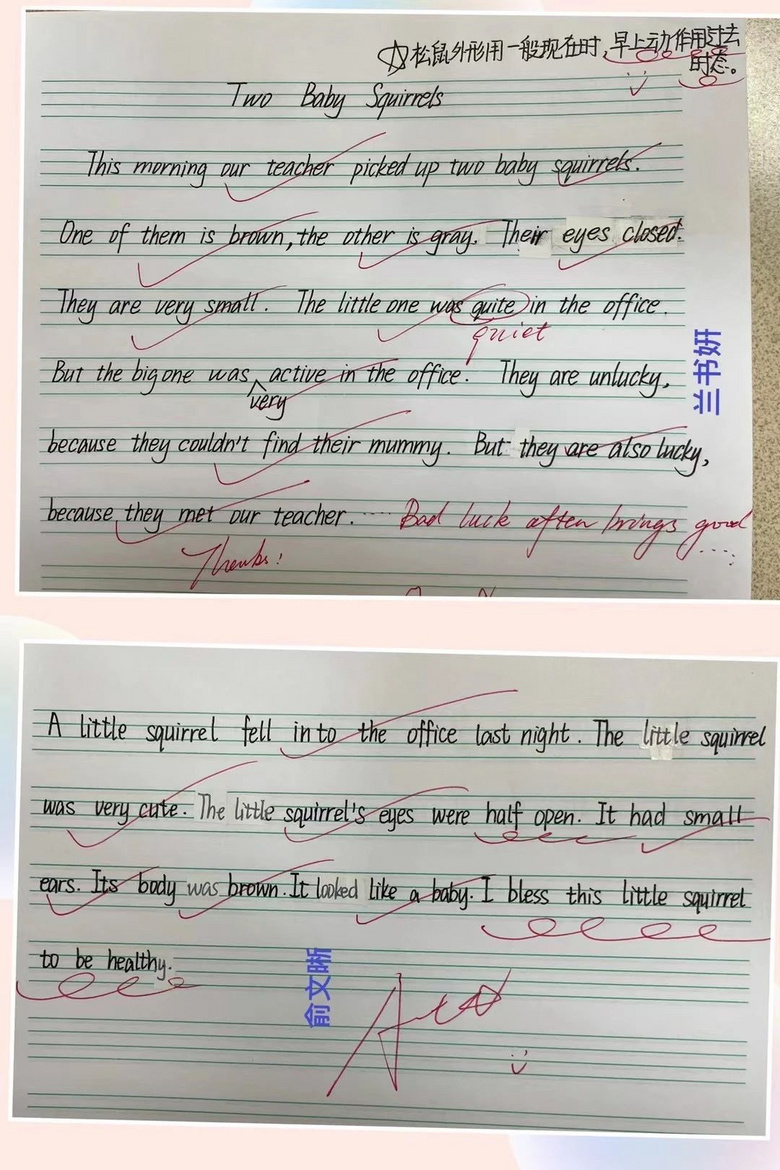 ☆松鼠外形用一般现在时,早上动作用过去
时态。
Two Baby Squirrels
This morning our teacher picked up two baby squirrels.
One of them is brown, the other is gray. Their eyes closed.
They are very small. The little one was quite in the office.
quiet
But the big one was active in the office. They are unlucky,
very
because they couldn't find their mummy. But they are also lucky,
because they met our teacher. .... Bad luck often brings good
....
Thanks!
兰书妍
A little squirrel fell into the office last night. The little squirrel
was very cute. The little squirrel's eyes were half open. It had small
ears. Its body was brown. It looked like a baby. I bless this little squirrel
to be healthy.
俞文晰
A++☆